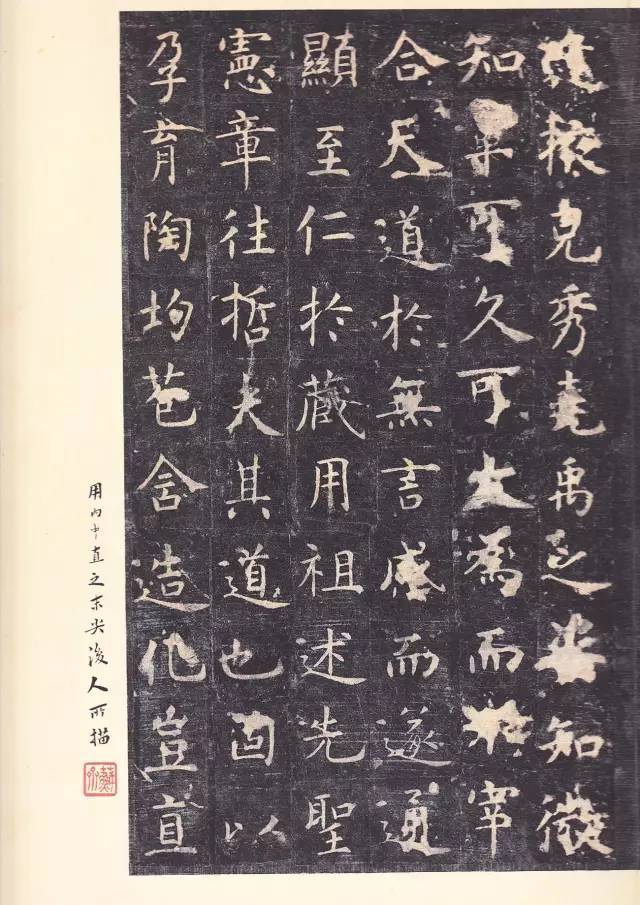 逢掖克秀堯禹之姿知微
知章可久可大為而不宰
合天道於無言感而遂通
顯至仁於蔵用祖述先聖
憲章往哲夫其道也固以
孕育陶均苞含造化豈直
用内中直之末尖後人所描